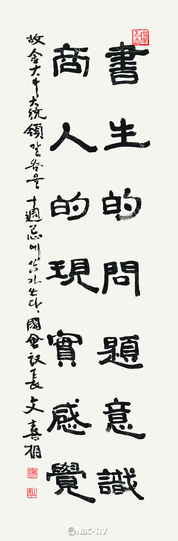 書生的問題意識
商人的現實感覺
故金大中大統領 말씀을 十週忌에 새기는다. 國會議長 文喜相
NBC-1TV